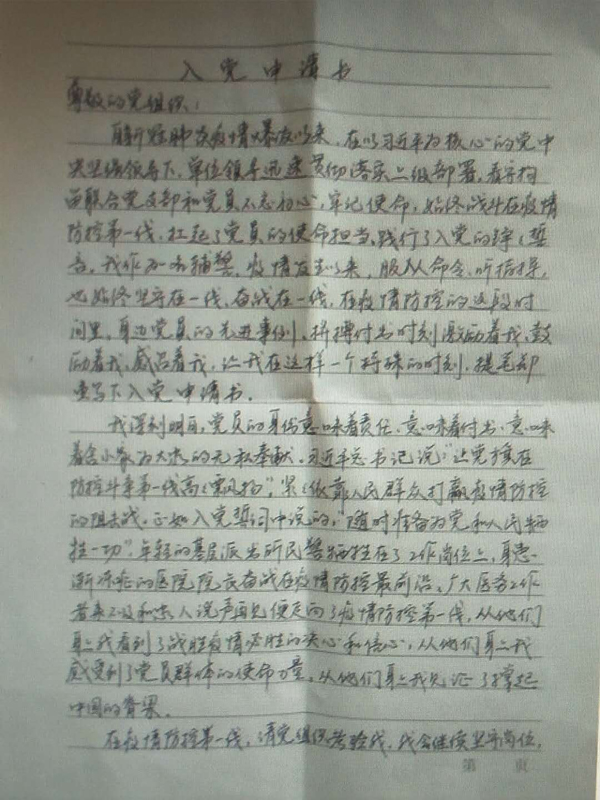 入党申请书
尊敬的党组织：
自新冠肺炎疫情爆发以来，在以习近平为核心的党中
央坚强领导下，单位领导迅速贯彻落实上级部署，看守拘
留联合党支部和党员不忘初心，牢记使命，始终战斗在疫情
防控第一线，扛起了党员的使命担当，践行了入党的铮铮誓
言。我作为一名辅警，疫情发生以来，服从命令、听指挥，
也始终坚守在一线，奋战在一线，在疫情防控的这段时
间里，身边党员的先进事例、拼搏付出时刻激励着我、鼓
励着我、感召着我，让我在这样一个特殊的时刻，提笔郑
重写下入党申请书。
我深刻明白，党员的身份意味着责任、意味着付出、意味
着舍小家为大家的无私奉献。习近平总书记说：“让党旗在
防控斗争第一线高高飘扬”，紧紧依靠人民群众打赢疫情防控
的阻击战。正如入党誓词中说的，“随时准备为党和人民牺
牲一切”。年轻的基层派出所民警牺牲在了工作岗位上，身患
渐冻症的医院院长奋战在疫情防控最前沿，广大医务工作
者来不及和家人说声再见便走向了疫情防控第一线，从他们
身上我看到了战胜疫情必胜的决心和信心，从他们身上我
感受到了党员群体的使命力量，从他们身上我见证了撑起
中国的脊梁。
在疫情防控第一线，请党组织考验我，我会继续坚守岗位，
第 页